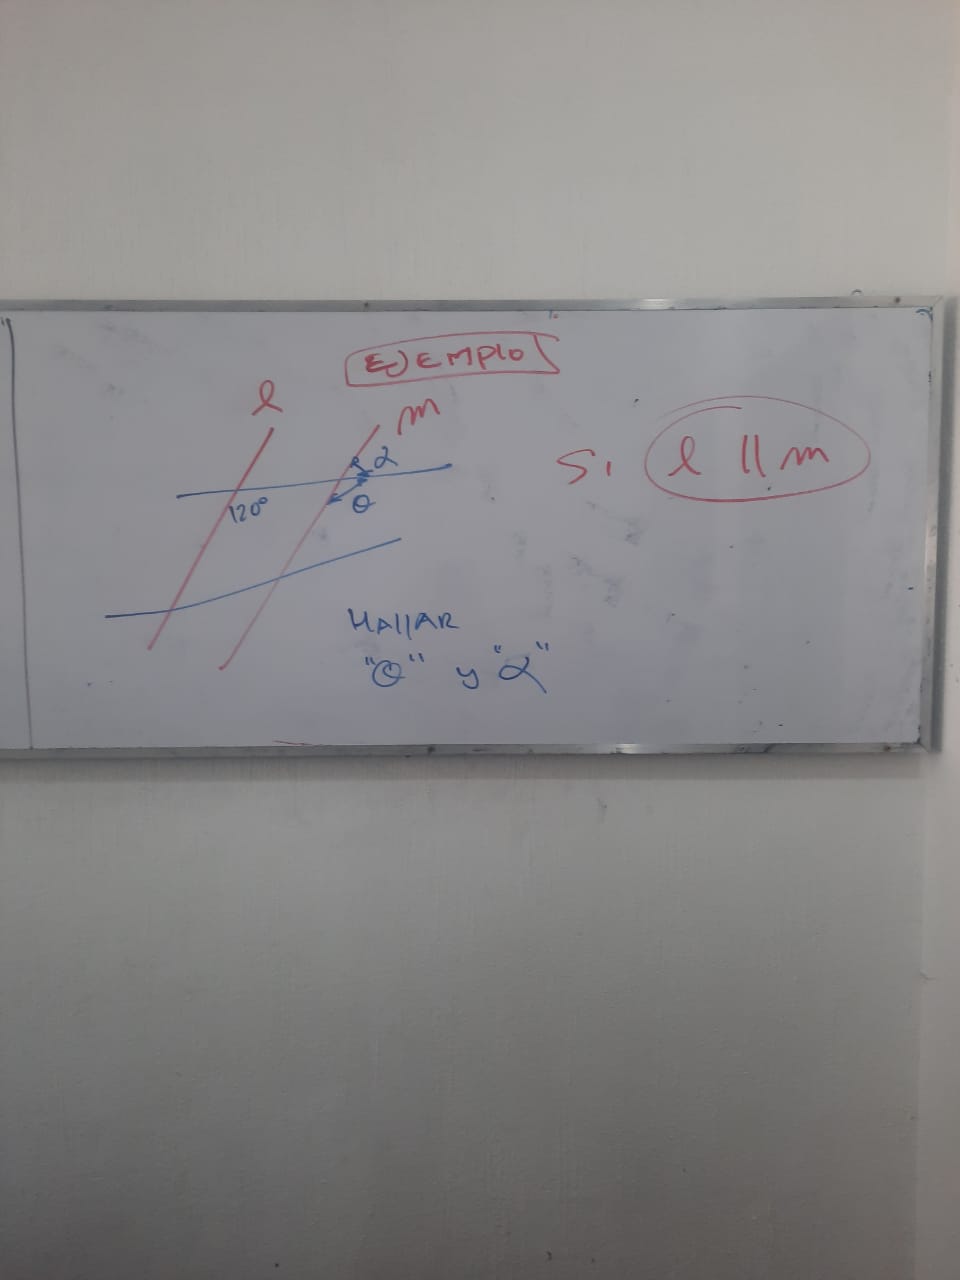 EJEMPLO
l
m
α
120°
θ
Si l || m
HALLAR
"θ" y "α"